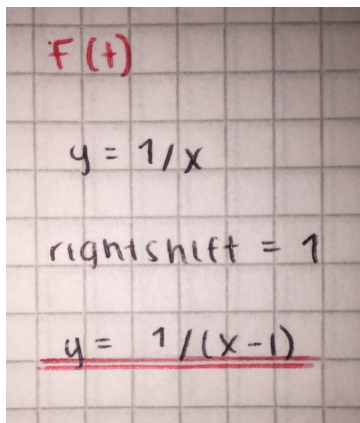 F(t)
y = 1/x
rightshift = 1
y = 1/(x-1)